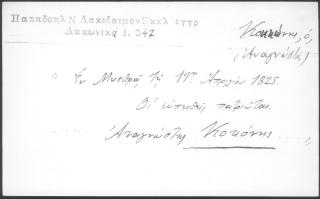 Παπαδοπλ Ν Λακεδαιμον Εκκλ εγγρ
Λακωνικά 1, 347
Κοκώνης, ὁ,
(Ἀναγνώστης)
Ἐν Μυστρᾷ τῇ 11ῃ Ἀπριλίου 1825.
Οἱ εὐπειθεῖς πατριῶται
Ἀναγνώστης Κοκόνης